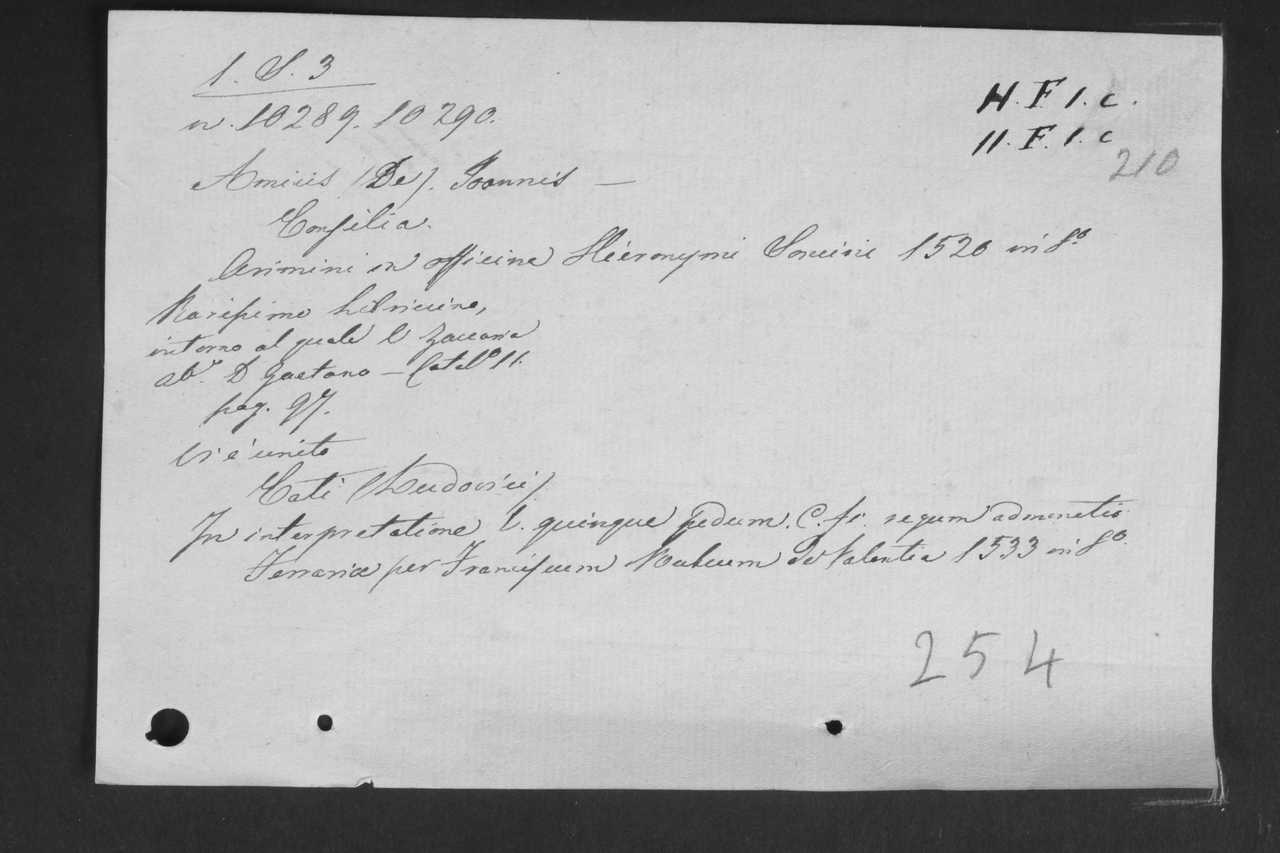 1. S. 3
n. 10289. 10290.
H. F. 1. c.
11. F. 1. c
210
Amicis (De). Joannis —
Consilia.
Arimini in officina Hieronymi Soncini 1520 in 8º
Rarissimo libricino,
intorno al quale v. Zaccaria
ab.e D Gaetano — Catalº 11.
pag. 97.
Vi è unito
Cati (Ludovici)
In interpretatione l. quinque pedum. C. fi. regum
Ferrariæ per Franciscum de Valentia 1533 in 8º.
254